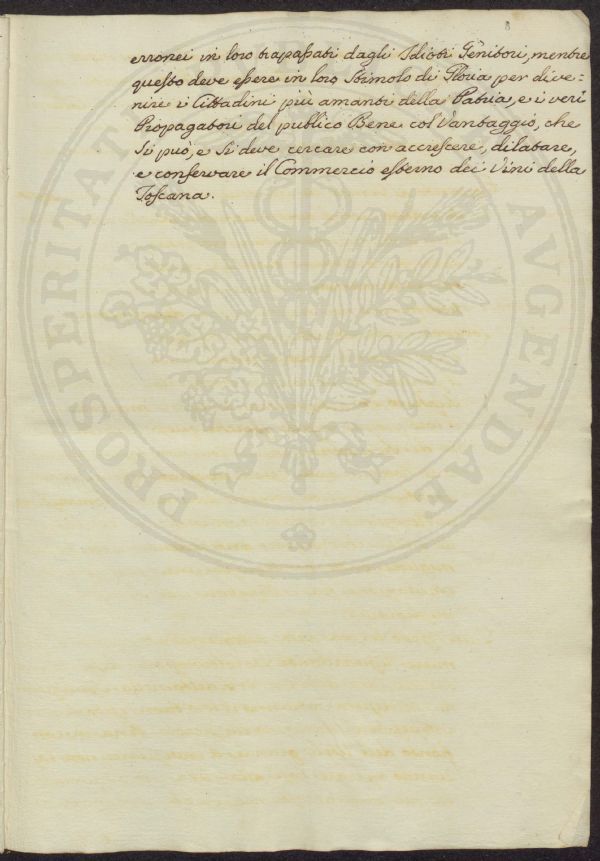 8
erronei in loro trapassati dagli Idioti Genitori, mentre
questo deve essere in loro Stimolo di Gloria per dive=
nire i Cittadini più amanti della Patria, e i veri
Propagatori del publico Bene col Vantaggio, che
si può, e si deve cercare con accrescere, dilatare,
e conservare il Commercio esterno dei Vini della
Toscana.
PROSPERITATI AVGENDAE